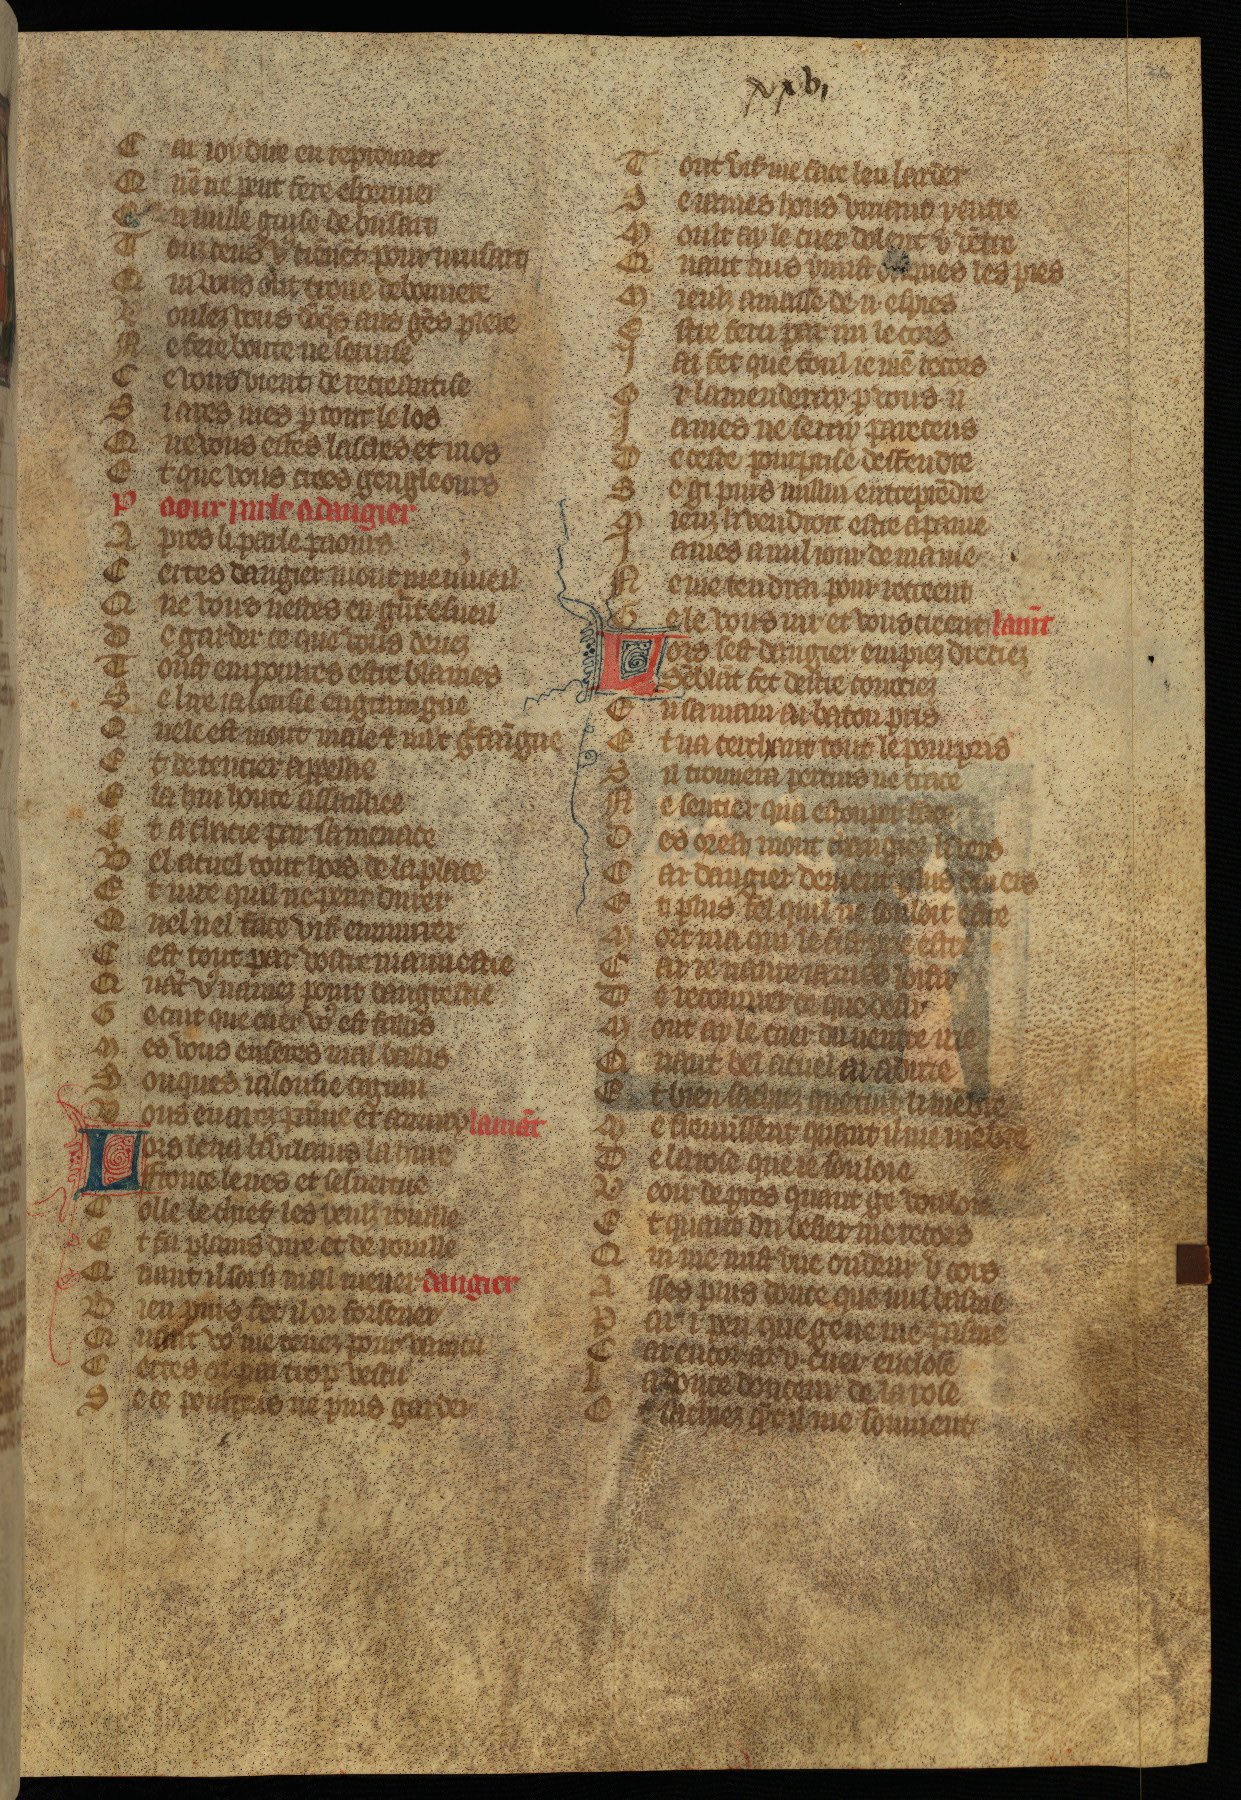 xxvi
C ar ioy dire en reprouier
Q ue ne peut fere espreuier
E n nulle guise de busart
T ouz ceus v tienent pour musart
Q ui vous ont troue debonnere
V oulez vous donqs aus gens plere
N e fere bonte ne seruise
C e vous vient de recreantise
S i ares mes p tout le los
Q ue vous estes lasches et mos
E t que vous crees gengleours
P aour parle a dangier
A pres li parle paours
C ertes dangier mout me merueil
Q ue vous nestes en gnt esueil
D e garder ce que vous deuez
T ost en pourres estre blames
S e lire ialousie engraingne
Q uele est mout male et mlt grifaigne
E t de tencier
E la hui honte assaillie
E t a chacie par sa menace
B el acuel tout hors de la place
E t iure quil ne peut durer
Q uel nel face vif enmurer
C est tout par vostre mauuestie
Q uat v nauez point dangrestie
G e cuit que cuer vo est faillis
M es vous enseres mal baillis
S onques ialousie
V ous en aurez paine et lamat
L ors leua li vilains la hure
ffronce le nes et sesuertue
R olle les iex
E t fu plains dire et de rouille
Q uant il soi si mal mener dangier
B ien puis fet il or forsener
Q uant vo me tenez pour vaincu
C ertes or ai trop vescu
S e ce pourpris ne puis garder
T out vif me face len larder
S e iames hons viuant y entre
M oult ay le cuer dolent v ventre
Q uant nus y mist onques les pies
M ieulz amasse de .ii. espies
E stre feru par mi le cors
I ai fet que foul ie men recors
O r lamenderay p vous .ii.
I ames ne seray pareceus
D e ceste pourprise deffendre
S e gi puis nullui entreprendre
M ieuz li vendroit estre a pauie
I ames a nul iour de ma uie
N e me tendra pour recreent
G e le vous iur et vous creent lamt
L ors sest dangier en piez dreciez
Senblat fet destre courciez
E n sa main a .i. baton pris
E t ua cerchant tout le pourpris
S il trouuera pertuis ne trace
N e sentier qua estouper face
D es orez mout changiez li vers
C ar dangier deuient plus diuers
E t plus fel quil ne souloit estre
M ort ma qui
C ar ie naure iames loisir
D e recouurer ce que desir
M out ay le cuer du uentre ire
Q uant bel acuel ai
E t bien sachiez que tuit li menbre
M e fremissent quant il me menbre
D e la rose que ie souloie
V eoir de pres quant ge vouloie
E t quant du besier me recors
Q ui me mist vne oudeur v cors
A sses plus douce que nul basme
P ar .i. peu que ge ne me pasme
C ar encor ai v cuer enclose
L a douce douceur de la rose
E t sachiez qt il me souuient